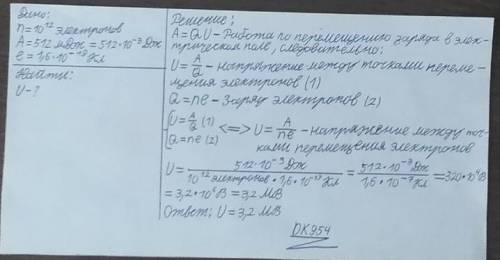 Дано:
n=10¹² электронов
A=512 мДж=512·10⁻³ Дж
e=1,6·10⁻¹⁹ Кл
Найти:
U-?
Решение:
A=QU - Работа по перемещению заряда в элек-
трическом поле, следовательно:
U=A/Q - напряжение между точками переме-
щения электронов (1)
Q=ne - Заряд электронов (2)
{U=A/Q (1)
{Q=ne (2) <=> U=A/ne - напряжение между точ-
ками перемещения электронов
U=512·10⁻³Дж/10¹²электронов·1,6·10⁻¹⁹Кл=512·10⁻³Дж/1,6·10⁻⁷Кл=320·10⁴В=
=3,2·10⁶В=3,2 МВ
Ответ: U=3,2 МВ
DK954